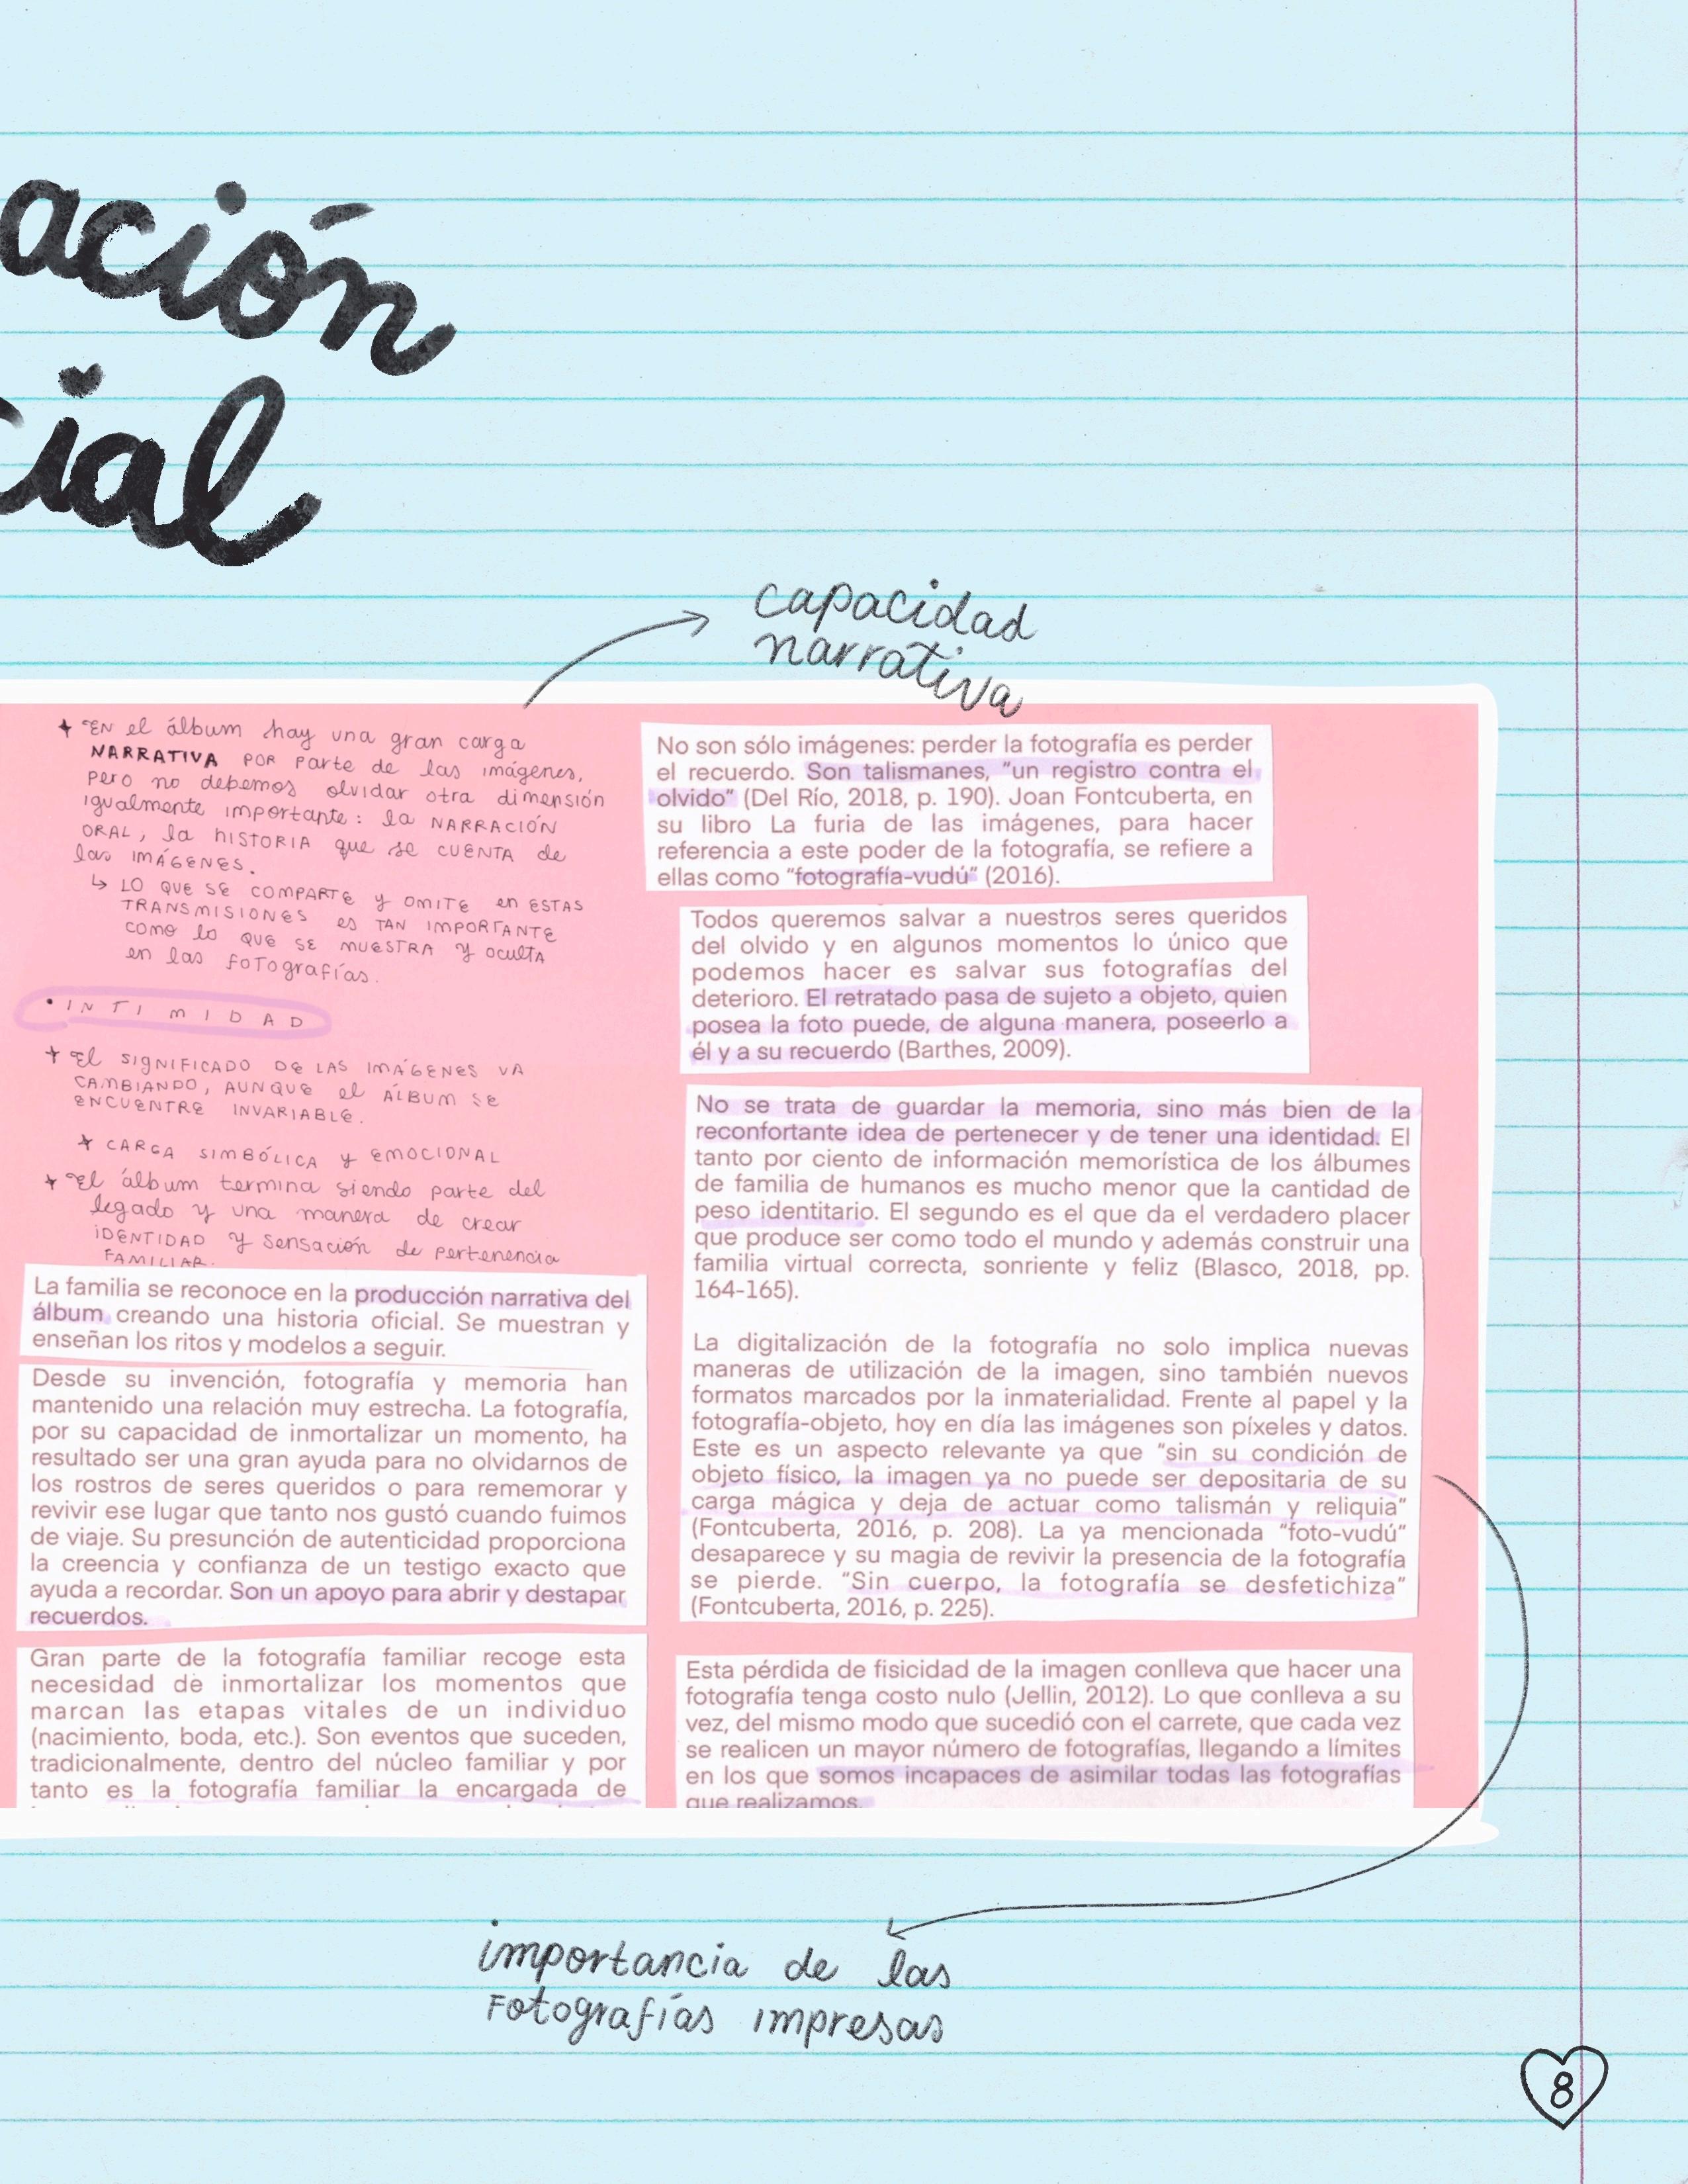 ación
cial
capacidad
narrativa
EN el álbum hay una gran carga
NARRATIVA POR parte de las imágenes,
pero no debemos olvidar otra dimensión
igualmente importante: la NARRACIÓN
ORAL, la HISTORIA que se CUENTA de
las IMÁGENES.
↳ LO QUE SE COMPARTE y OMITE en ESTAS
TRANSMISIONES es TAN IMPORTANTE
COMO lo QUE SE MUESTRA y OCULTA
en las fotografías.
• INTIMIDAD
El SIGNIFICADO DE LAS IMÁGENES VA
CAMBIANDO, AUNQUE el ÁLBUM SE
ENCUENTRE INVARIABLE.
CARGA SIMBÓLICA y EMOCIONAL
El álbum termina siendo parte del
legado y una manera de crear
IDENTIDAD y sensación de pertenencia
FAMILIAR.
La familia se reconoce en la producción narrativa del
álbum creando una historia oficial. Se muestran y
enseñan los ritos y modelos a seguir.
Desde su invención, fotografía y memoria han
mantenido una relación muy estrecha. La fotografía,
por su capacidad de inmortalizar un momento, ha
resultado ser una gran ayuda para no olvidarnos de
los rostros de seres queridos o para rememorar y
revivir ese lugar que tanto nos gustó cuando fuimos
de viaje. Su presunción de autenticidad proporciona
la creencia y confianza de un testigo exacto que
ayuda a recordar. Son un apoyo para abrir y destapar
recuerdos.
Gran parte de la fotografía familiar recoge esta
necesidad de inmortalizar los momentos que
marcan las etapas vitales de un individuo
(nacimiento, boda, etc.). Son eventos que suceden,
tradicionalmente, dentro del núcleo familiar y por
tanto es la fotografía familiar la encargada de
No son sólo imágenes: perder la fotografía es perder
el recuerdo. Son talismanes, "un registro contra el
olvido" (Del Río, 2018, p. 190). Joan Fontcuberta, en
su libro La furia de las imágenes, para hacer
referencia a este poder de la fotografía, se refiere a
ellas como "fotografía-vudú" (2016).
Todos queremos salvar a nuestros seres queridos
del olvido y en algunos momentos lo único que
podemos hacer es salvar sus fotografías del
deterioro. El retratado pasa de sujeto a objeto, quien
posea la foto puede, de alguna manera, poseerlo a
él y a su recuerdo (Barthes, 2009).
No se trata de guardar la memoria, sino más bien de la
reconfortante idea de pertenecer y de tener una identidad. El
tanto por ciento de información memorística de los álbumes
de familia de humanos es mucho menor que la cantidad de
peso identitario. El segundo es el que da el verdadero placer
que produce ser como todo el mundo y además construir una
familia virtual correcta, sonriente y feliz (Blasco, 2018, pp.
164-165).
La digitalización de la fotografía no solo implica nuevas
maneras de utilización de la imagen, sino también nuevos
formatos marcados por la inmaterialidad. Frente al papel y la
fotografía-objeto, hoy en día las imágenes son píxeles y datos.
Este es un aspecto relevante ya que "sin su condición de
objeto físico, la imagen ya no puede ser depositaria de su
carga mágica y deja de actuar como talismán y reliquia"
(Fontcuberta, 2016, p. 208). La ya mencionada "foto-vudú"
desaparece y su magia de revivir la presencia de la fotografía
se pierde. "Sin cuerpo, la fotografía se desfetichiza"
(Fontcuberta, 2016, p. 225).
Esta pérdida de fisicidad de la imagen conlleva que hacer una
fotografía tenga costo nulo (Jellin, 2012). Lo que conlleva a su
vez, del mismo modo que sucedió con el carrete, que cada vez
se realicen un mayor número de fotografías, llegando a límites
en los que somos incapaces de asimilar todas las fotografías
que realizamos.
importancia de las
Fotografías impresas
8